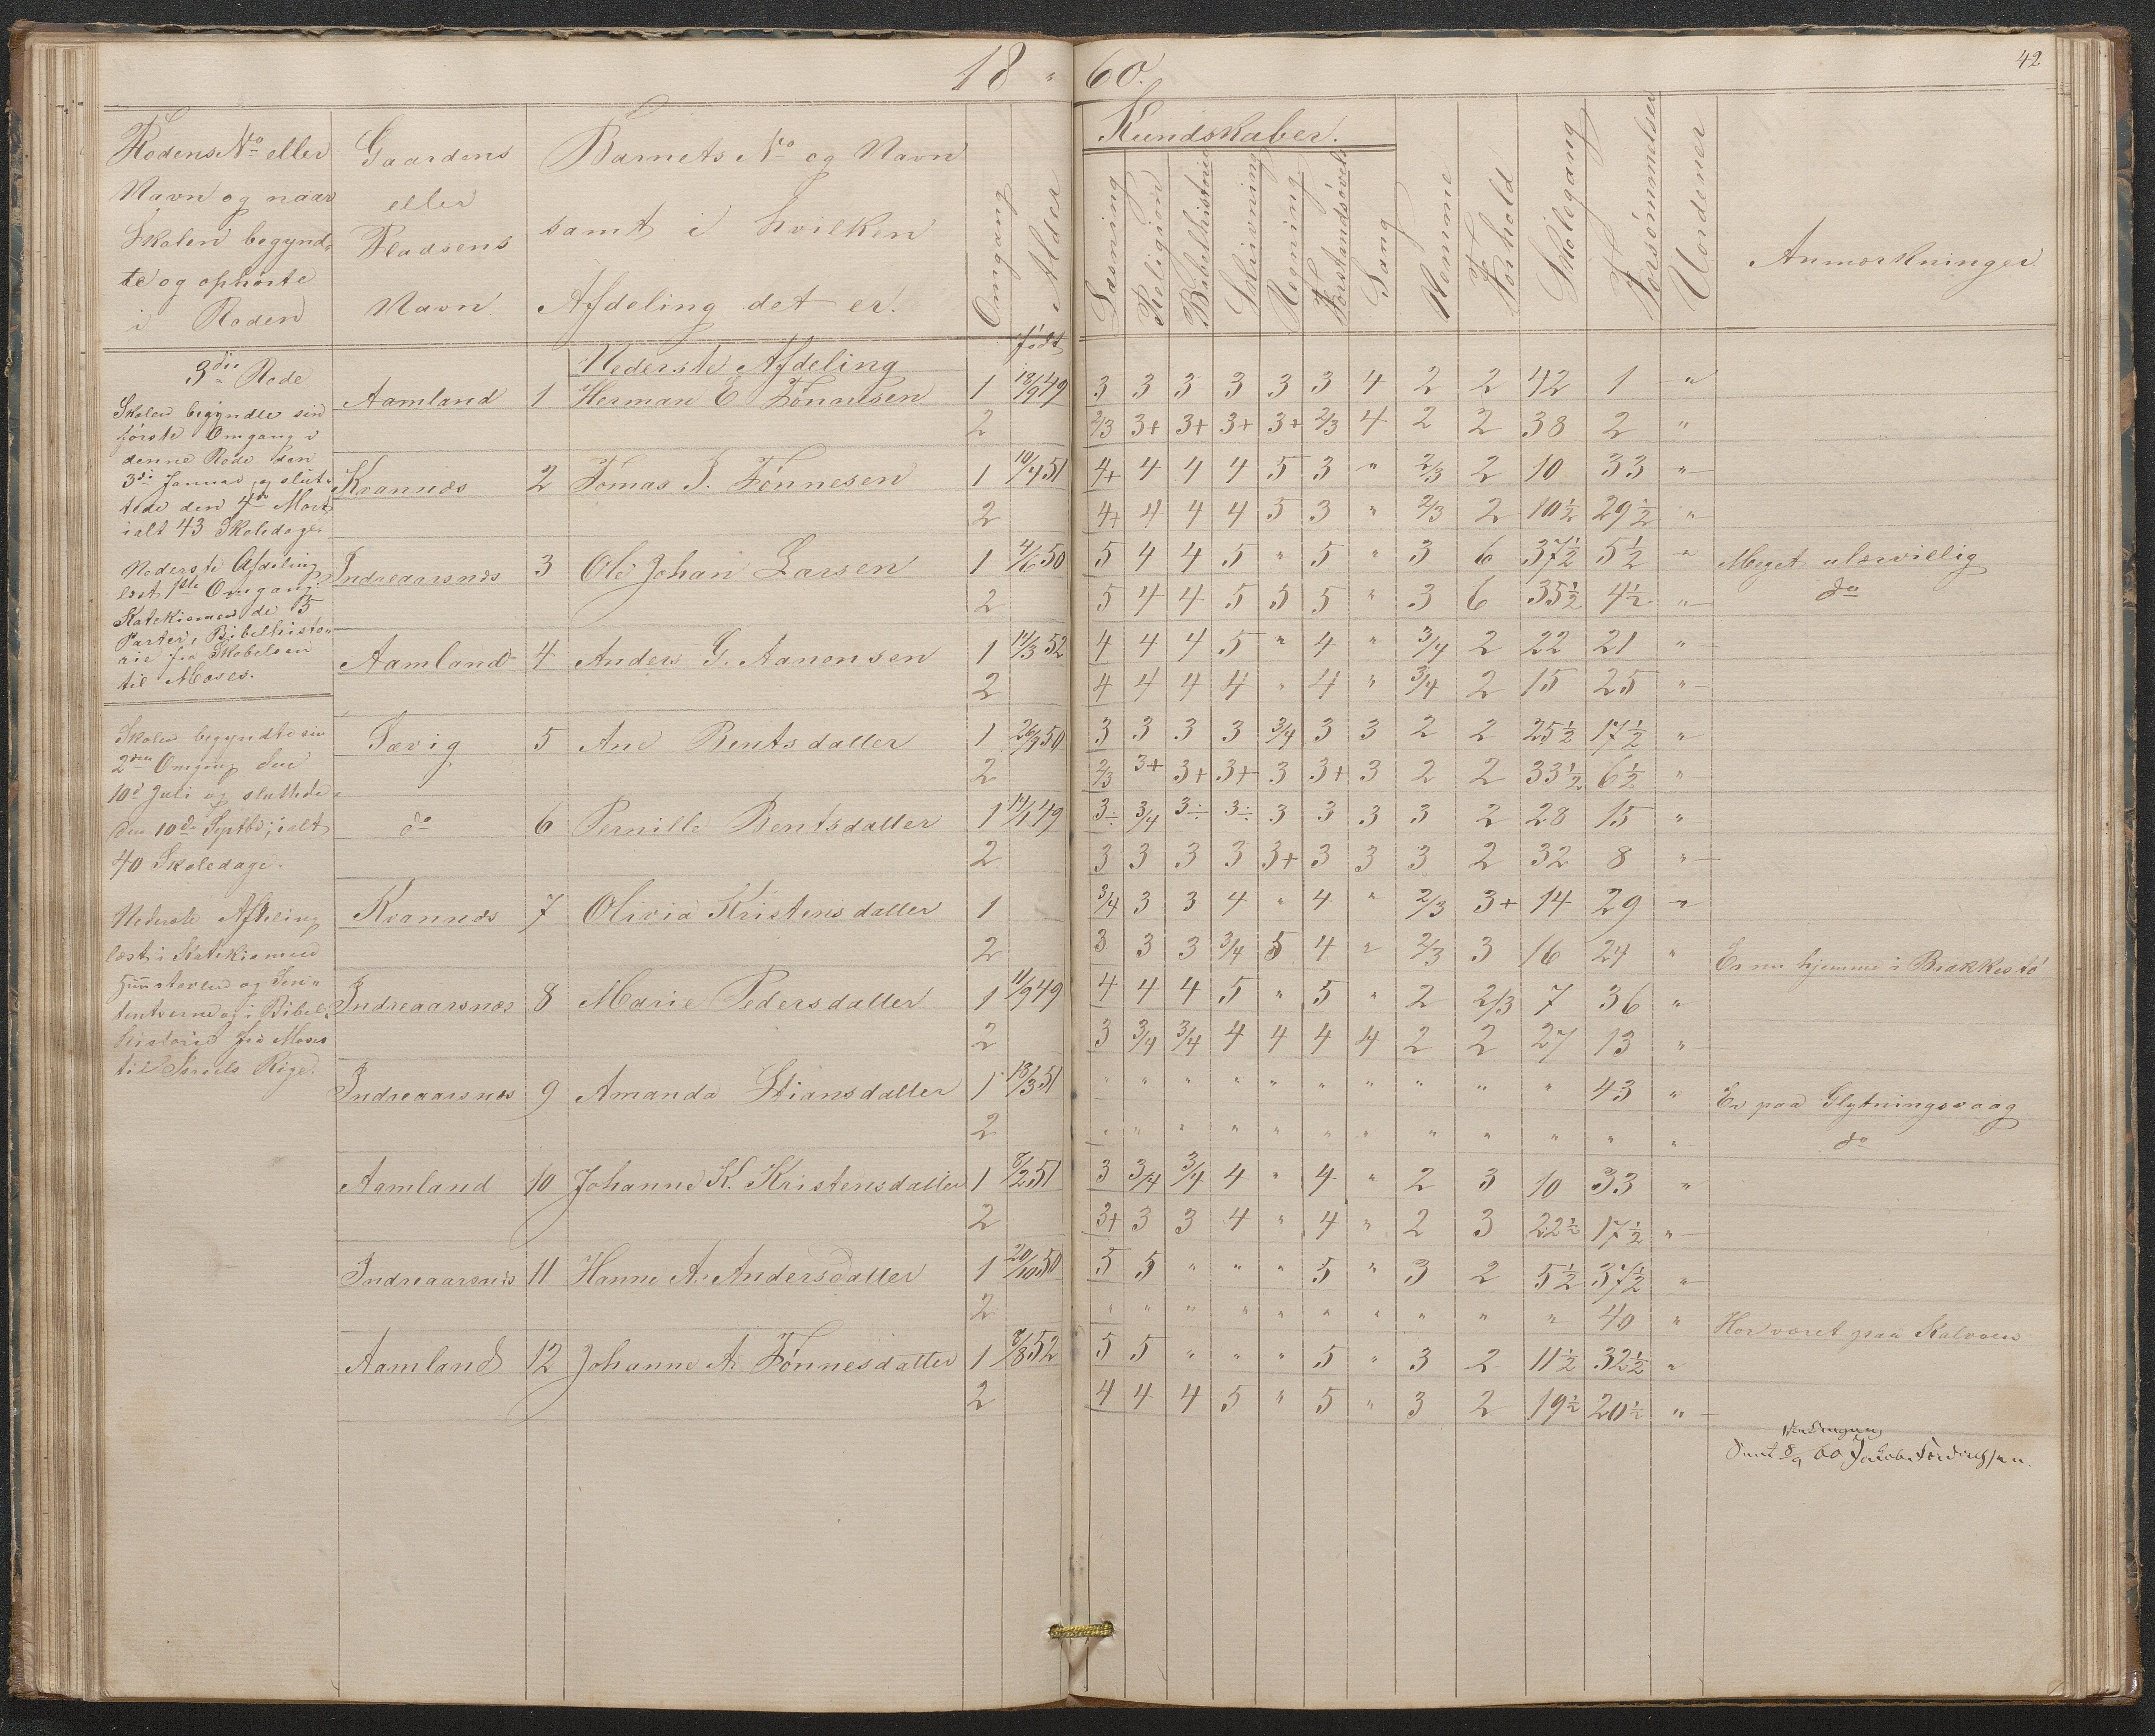 18 " 60.
42
Rodens No eller
Navn og naar
Skolen begynd-
te og ophørte
i Roden
Gaardens
eller
Pladsens
Navn
Barnets No og Navn
samt i hvilken
Afdeling det er.
Omgang
Alder
Kundskaber.
Læsning
Religion
Bibelhistorie
Skrivning
Regning
Forstandsøvels
Sang
Nemme
Forhold
Skolegang
Forsømmelser
Uordener
Anmærkninger
født
3die Rode
Skolen begyndte sin
første Omgang i
denne Rode den
3di Januar og slut-
tede den 4de Mart
ialt 43 Skoledage
Nederste Afdeling
læst 1ste Omgang i
Katekismen de 5
Parter, Bibelhisto-
rie fra Skabelsen
til Moses.
Skolen begyndte sin
2den Omgang den
10d Juli og sluttede
den 10de Septbr; ialt
40 Skoledage.
Nederste Afdeling
læst i Katekismen
og i Bibel-
historie fra Moses
til Israels Rige.
Nederste Afdeling
Aamland 1 Herman E Tønnesen 1 18/9 49 3 3 3 3 3 3 4 2 2 42 1 "
2 2/3 3+ 3+ 3+ 3+ 2/3 4 2 2 38 2 "
Kvannes 2 Tomas T. Tønnesen 1 10/4 51 4+ 4 4 4 5 3 " 2/3 2 10 33 "
2 4+ 4 4 4 5 3 " 2/3 2 10½ 29½ "
Indreaarsnes 3 Ole Johan Larsen 1 4/6 50 5 4 4 5 " 5 " 3 6 37½ 5½ " Meget ulærvillig
2 5 4 4 5 5 5 " 3 6 35½ 4½ " do
Aamland 4 Anders G. Aanonsen 1 14/3 52 4 4 4 5 " 4 " 3/4 2 22 21 "
2 4 4 4 4 " 4 " 3/4 2 15 25 "
Tævig 5 Ane Bentsdatter 1 26/9 50 3 3 3 3 3/4 3 3 2 2 25½ 17½ "
2 2/3 3+ 3+ 3+ 3 3+ 3 2 2 33½ 6½ "
do 6 Pernille Bentsdatter 1 14/1 49 3÷ 3/4 3÷ 3÷ 3 3 3 3 2 28 15 "
2 3 3 3 3 3+ 3 3 3 2 32 8 "
Kvannes 7 Olivia Kristensdatter 1 3/4 3 3 4 " 4 " 2/3 3+ 14 29 "
2 3 3 3 3/4 5 4 " 2/3 3 16 24 " Er nu hjemme i Brækkestø
Indreaarsnæs 8 Marie Pedersdatter 1 11/9 49 4 4 4 5 " 5 " 2 2/3 7 36 "
2 3 3/4 3/4 4 4 4 4 2 2 27 13 "
Indreaarsnæs 9 Amanda Stiansdatter 1 18/3 51 " " " " " " " " " " 43 " Er paa Glytningsvaag
2 " " " " " " " " " " " " do
Aamland 10 Johanne K. Kristensdatter 1 8/2 51 3 3/4 3/4 4 " 4 " 2 3 10 33 "
2 3+ 3 3 4 " 4 " 2 3 22½ 17½ "
Indreaarsnes 11 Hanne A. Andersdatter 1 20/10 50 5 5 " " " 5 " 3 2 5½ 37½ "
2 " " " " " " " " " " 40 " Har været paa Kalvøen
Aamland 12 Johanne A. Tønnesdatter 1 8/8 52 5 5 " " " 5 " 3 2 11½ 32½ "
2 4 4 4 5 " 5 " 3 2 19½ 20½ "
60